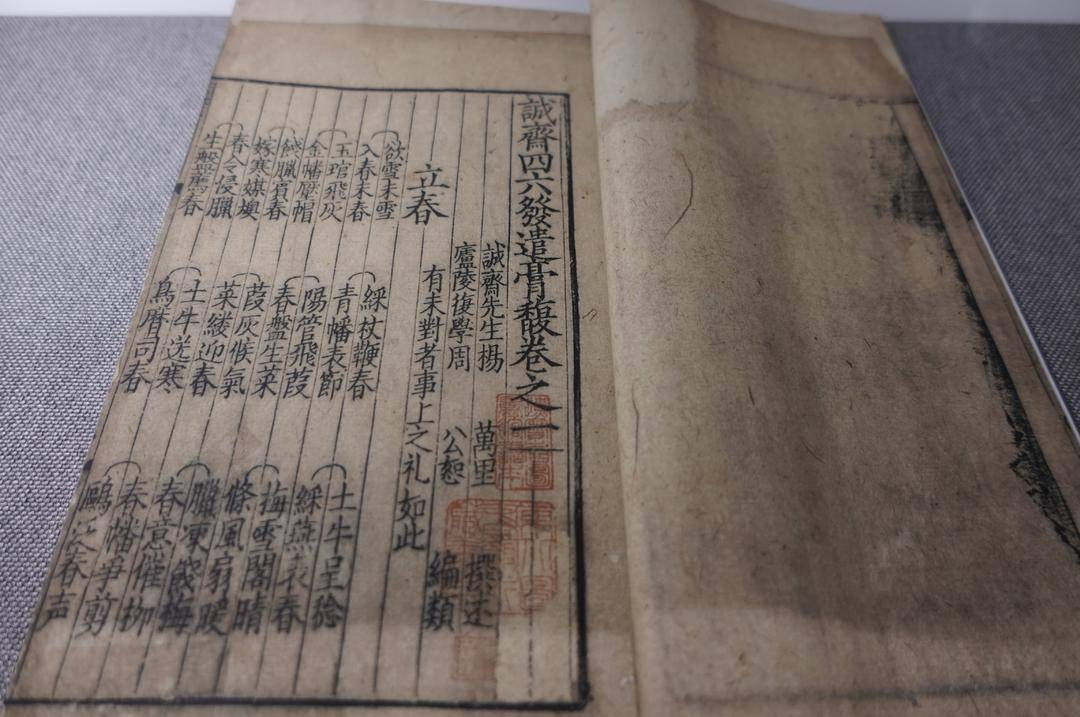 誠齋四六發遣膏馥卷之一
誠齋先生揚 萬里 撰述
廬陵後學周 公恕 編類
立春 有未對者事上之礼如此
欲雪未雪 綵杖鞭春 土牛呈稔
入春未春 青幡表節 綵燕表春
玉琯飛灰 陽管飛葭 梅雪閣晴
金幡壓帽 春盤生菜 條風扇暖
餞臘賓春 葭灰候氣 臘凍餞梅
嫁寒娸燠 菜縷迎春 春意催柳
春令侵臘 土牛送寒 春幡爭剪
生盤薦春 鳥曆司春 春声